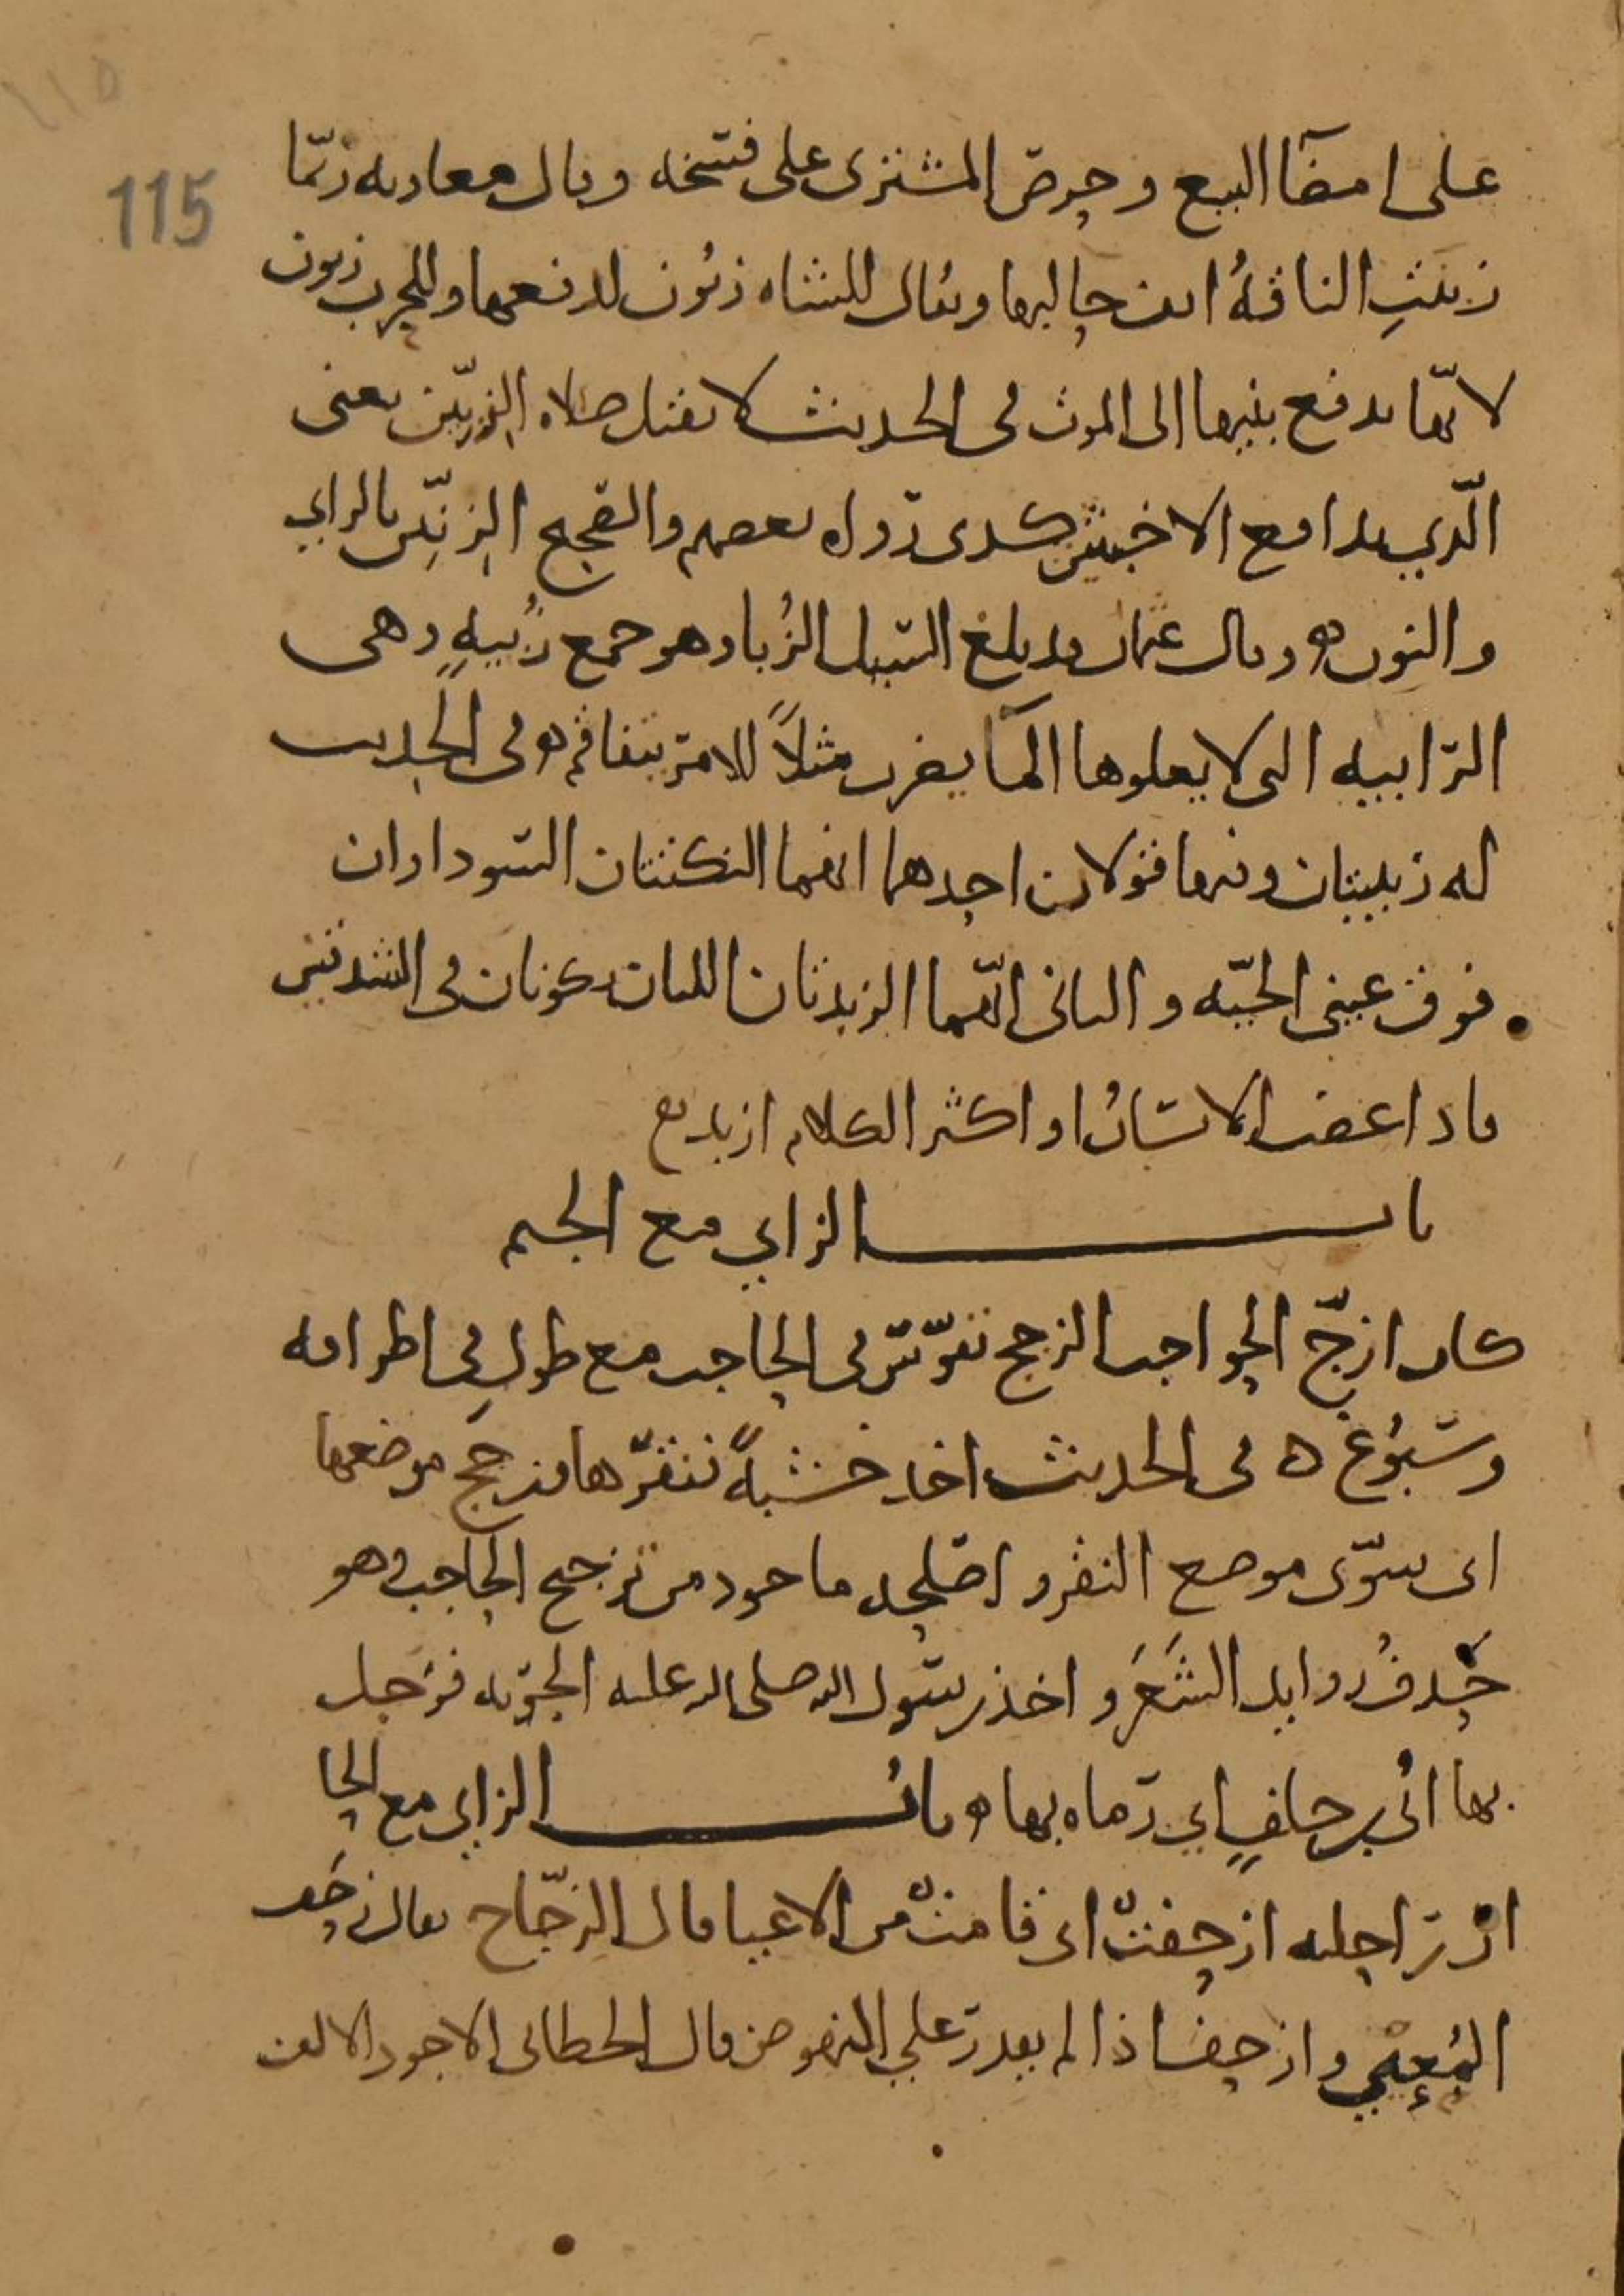 115
على امضآ البيع وحرص المشترى على فسخه وقال معاويه ربّما
زبنتِ الناقةُ انف حالبها ويقال للشاه زبُون لدفعها وللحرب زبون
لانّها تدفع بنيها الى الموت فى الحديث لا تقبل صلاه الزبّين يعنى
الّذي يدافع الاخبثين كذى رواه بعضهم والصحيح الزنّين بالزاي
والنون ه وقال عثمان قد بلغ السّيل الزُبا وهو جمع زُبيهٍ وهى
الرّابيه التى لا يعلوها المآ يضرب مثلاً للامر يتفاقم ه وفى الحديث
له زبيبتان وفيها قولان احدهما انهما النكتتان السّوداوان
فوق عينى الحيّه والثانى انّهما الزبدتان اللتان تكونان فى الشدقين
فاذا غضب الانسانُ او اكثر الكلام ازبد مع
باب الزاي مع الجيم
كان ازجّ الحواجب الزجج تقوّس فى الحاجب مع طولٍ فى اطرافه
وسبُوغ ه فى الحديث اخذ خشبةً فنقرها فزجج موضعها
اى سوّى موضع النقر واصلحه ماخوذ من تزجيج الحاجب وهو
حَذفُ زوايد الشَعَر واخذ رسول الله صلى الله عليه الحربه فزجل
بها اُبى بن خلفٍ اي رماه بها ه بابُ الزاي مع الحا
انّ راحلته ازحفتْ اى قامتْ من الاعيا قال الزجّاج يقال زحَف
المُعيي وازحف اذا لم يقدر على النهوض قال الخطابى الاجود الالف